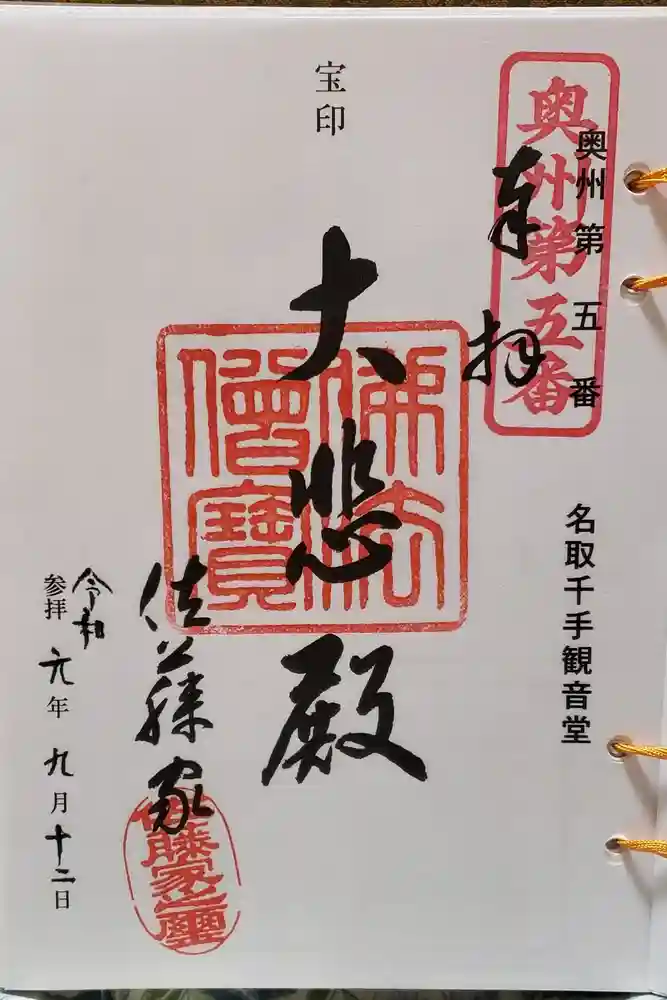 奥州第五番
奥州第五番
名取千手観音堂
奉拝
宝印
大悲殿
佛法
僧寶
佐藤家
佐藤家之璽
令和
参拝元年九月十二日